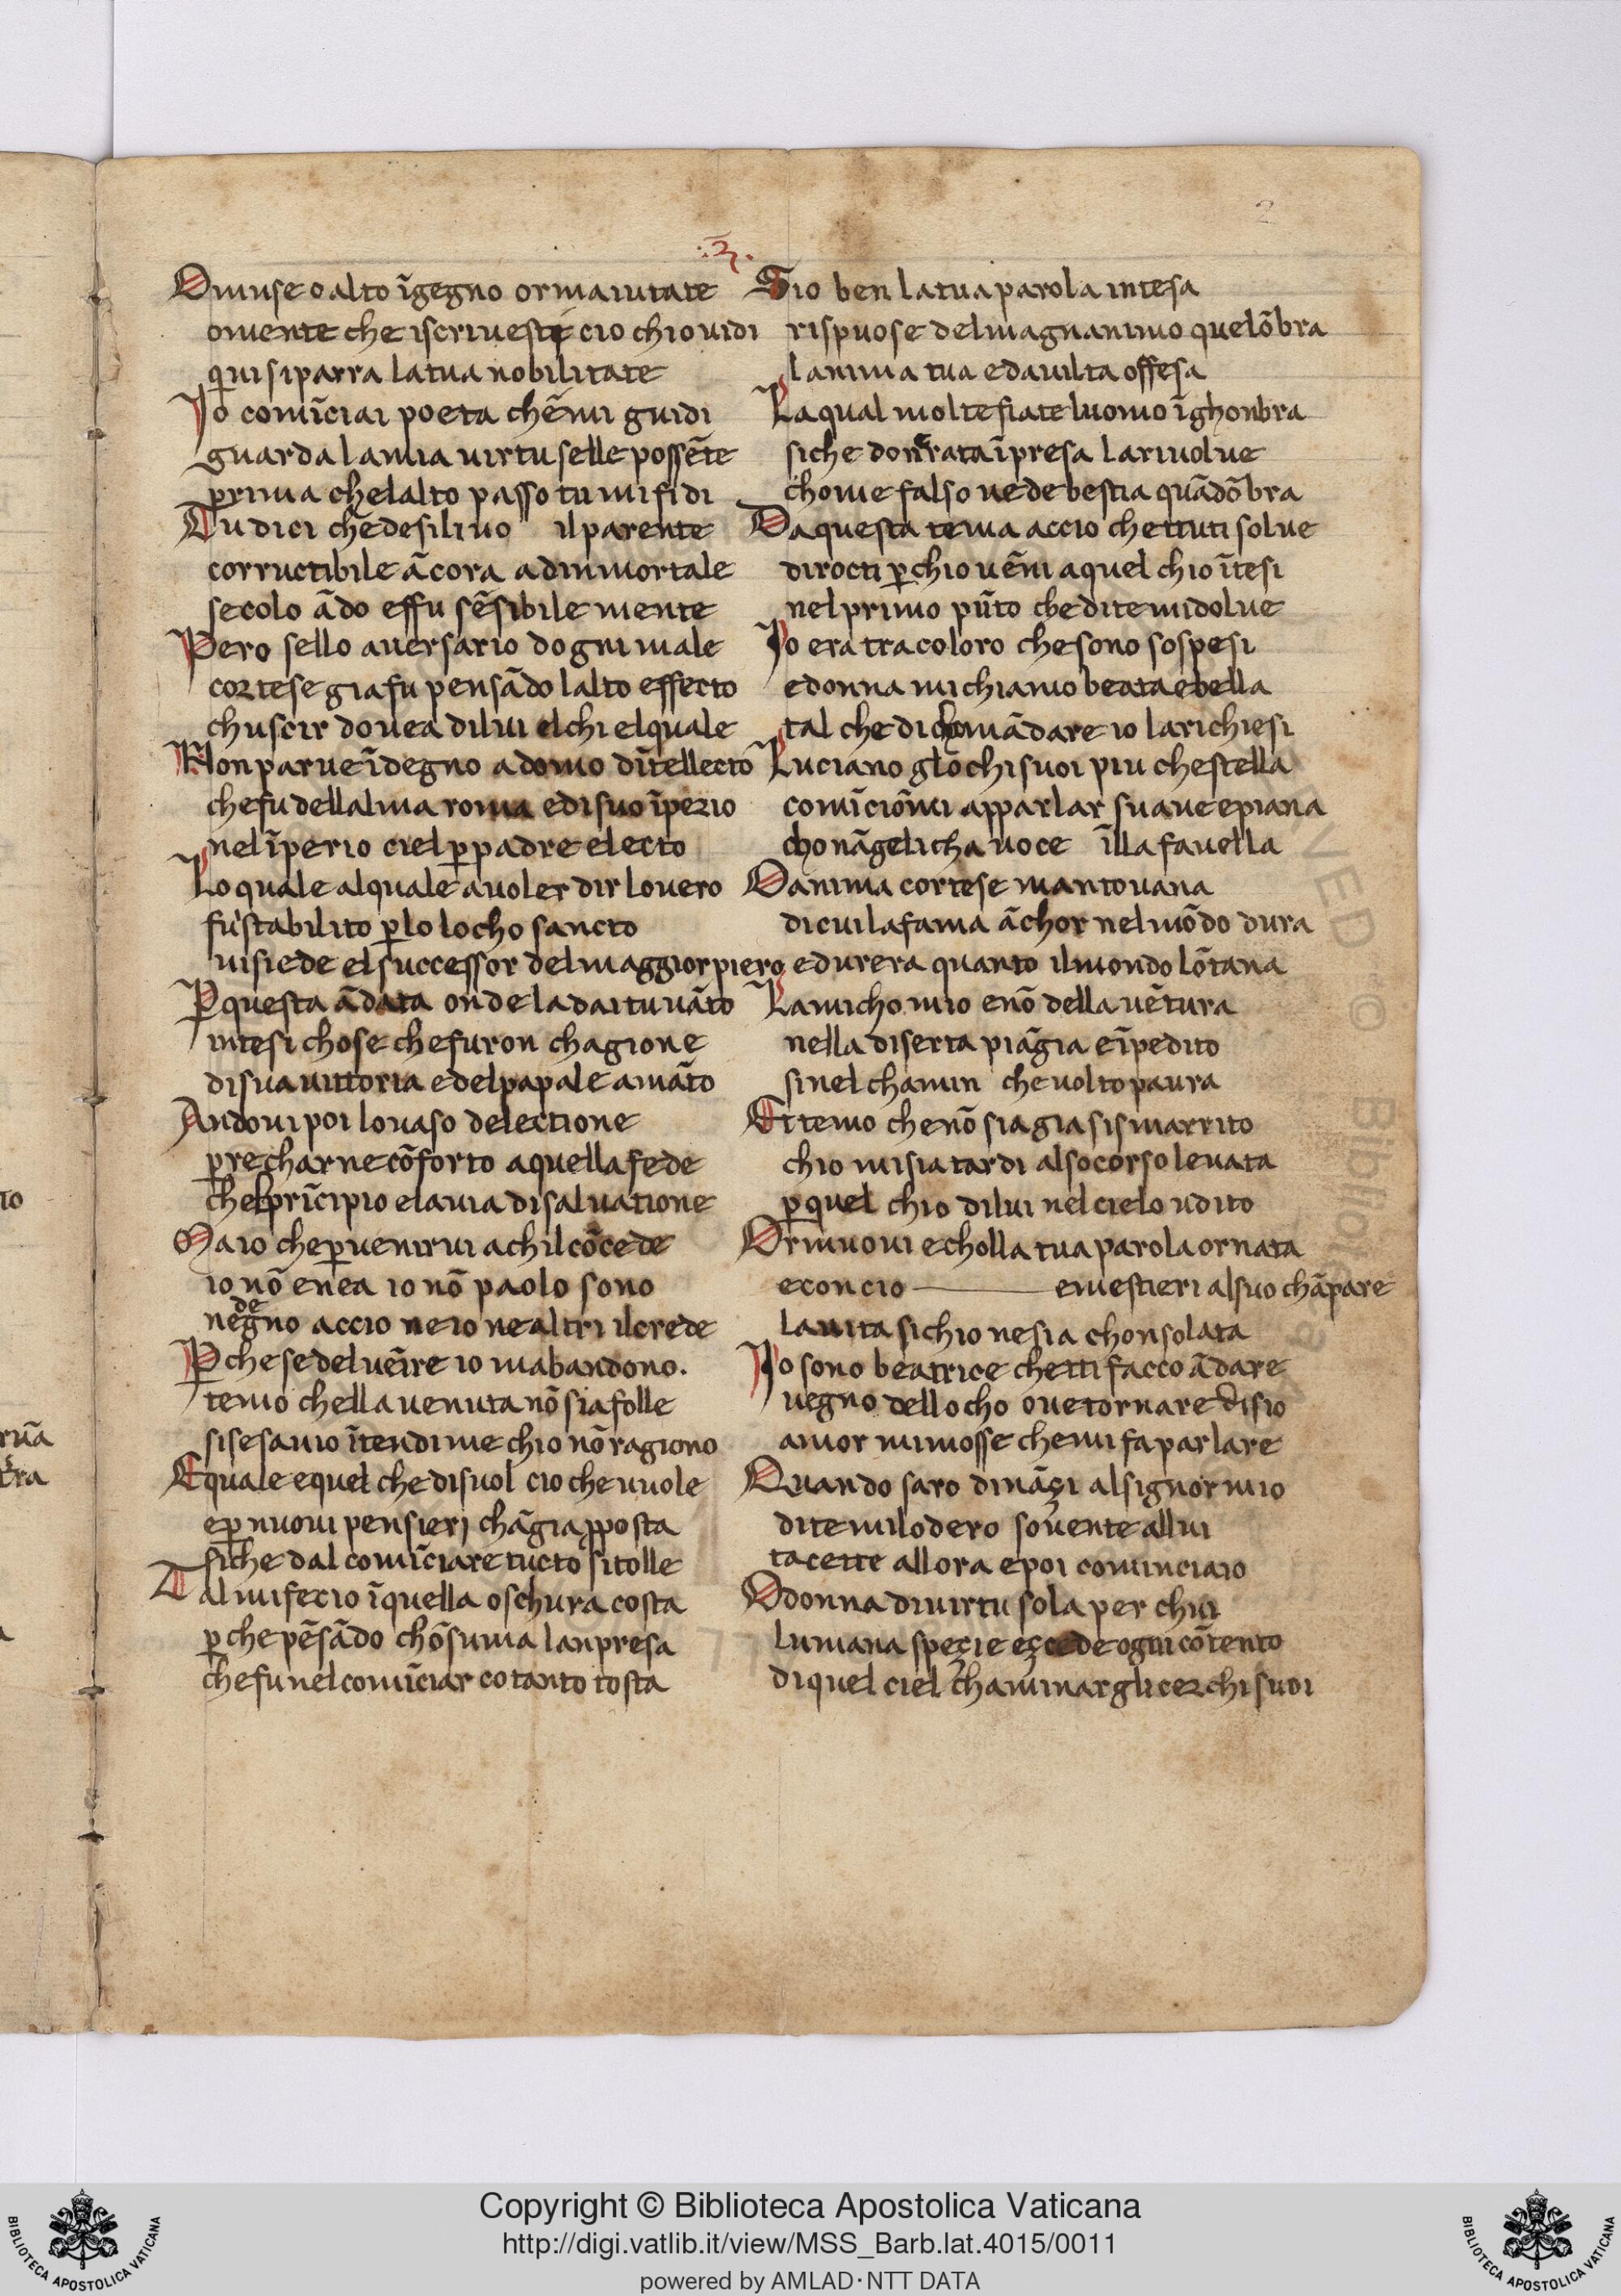 .2.
2
O muse o alto īgegno or maiutate
omente che iscrivesti cio chio vidi
qui si parra la tua nobilitate
Io comīciai poeta chēmi guidi
guarda la mia virtu selle possēte
prima chelalto passo tu mi fidi
Tu dici chē desilivo il parente
corructibile ācora ad inmortale
secolo ādo effu sēsibile mente
Pero sello aversario dogni male
cortese gia fu pensādo lalto effecto
chuscir dovea di lui el chi el quale
Non parve īdegno adomo dītellecto
che fu dellalma roma e di suo īperio
nel īperio ciel p padre electo
Lo quale alquale avoler dir lo vero
fu stabilito p lo locho sancto
uisiede el successor del maggior piero
P questa ādata onde la dai tu vāto
intesi chose che furon chagione
di sua vittoria e del papale amāto
Andovi poi lo vaso delectione
p recharne cōforto aquella fede
chel prīcipio e la via di salvatione
Ma io che p venirvi a chil cōcede
io nō enea io nō paolo sono
ne degno accio ne io ne altri il crede
P che se del venīre io mabandono.
temo chella venuta nō sia folle
si se savio ītendi me chio nō ragiono
E quale e quel che disvol cio che vuole
e p nuovi pensierj chāgia pposta
si che dal comīciare tucto si tolle
Tal mi fecio ī quella oschura costa
p che pēsādo chōsuma lanpresa
che fu nel comīciar cotanto tosta
Sio ben la tua parola intesa
rispuose del magnanimo quelōbra
lanima tua e da vilta offesa
La qual molte fiate luomo īghonbra
si che donrata īpresa la rivolve
chome falso vedere bestia quādōbra
Da questa tema accio chettuti solve
dirocti p chio vēni a quel chio ītesi
nel primo pūto che di te mi dolve
Io era tra coloro che sono sospesi
e donna mi chiamo beata e bella
tal che di chomādare io la richiesi
Luciano glōchi suoi piu che stella
comīciōmi apparlar suave e piana
chonāgelicha voce īlla favella
O anima cortese mantovana
di cui la fama āchor nel mōdo dura
e durera quanto il mondo lōtana
Lamicho mio e nō della vētura
nella diserta piāgia e īpedito
si nel chamin che volto paura
Et temo che nō sia gia si smarrito
chio mi sia tardi al socorso levata
p quel chio di lui nel cielo udito
Or muovi e cholla tua parola ornata
e con cio e mestieri al suo chāpare
laiuta si chio ne sia chonsolata
Io sono beatrice chetti facco ādare
vegno dellocho ove tornare disio
amor mi mosse che mi fa parlare
Quando saro dināçi al signor mio
di te mi lodero sovente allui
tacette allora e poi cominciaio
O donna di virtu sola per chui
lumana speçie eçcede ogni cōtento
di quel ciel cha minar gli cerchi suoi
to
rnā
RESERVED © Biblioteca
Copyright © Biblioteca Apostolica Vaticana
http://digi.vatlib.it/view/MSS_Barb.lat.4015/0011
powered by AMLAD·NTT DATA
BIBLIOTECA APOSTOLICA VATICANA
BIBLIOTECA APOSTOLICA VATICANA